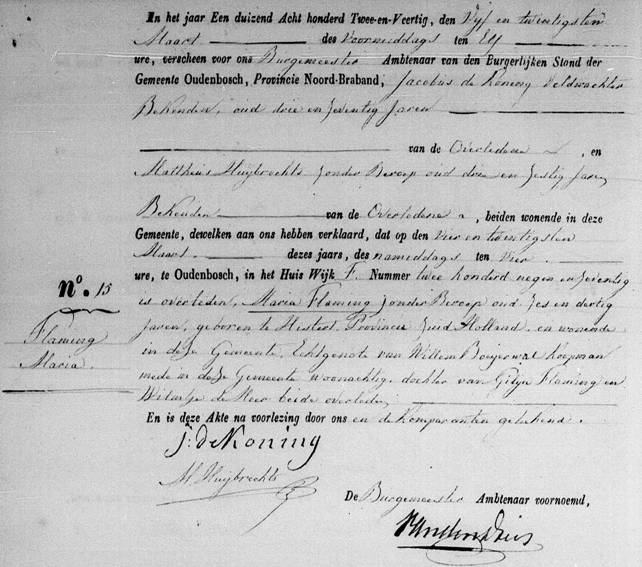 In het jaar Een duizend Acht honderd Twee-en-Veertig, den Vijf en twintigsten
Maart des Voormiddags ten Elf
ure, verscheen voor ons Burgemeester Ambtenaar van den Burgerlijken Stand der
Gemeente Oudenbosch, Provincie Noord-Braband, Jacobus de Koning Veldwachter
Bekenden, oud drie en Zeventig Jaren
van de Overledene , en
Mattheus Huijbrechts Zonder Beroep oud drie en Zestig Jaren
Bekenden van de Overledene , beiden wonende in deze
Gemeente, dewelken aan ons hebben verklaard, dat op den Vier en twintigsten
Maart dezes jaars, des nameddags ten Vier
ure, te Oudenbosch, in het Huis Wijk F. Nummer twee honderd negen en Zeventig
is overleden, Maria Flaming Zonder Beroep oud Zes en dertig
Jaren, geboren te Provincie Zuid Holland en wonende
in deze Gemeente, Echtgenote van Willem Koopman
mede in deze Gemeente woonachtig, dochter van Gijsje Flaming en
de Heer beide overleden
En is deze Akte na voorlezing door ons en de Komparanten getekend.
No. 15
Flaming
Maria
J: de Koning
M Huijbrechts
De Burgemeester Ambtenaar voornoemd,